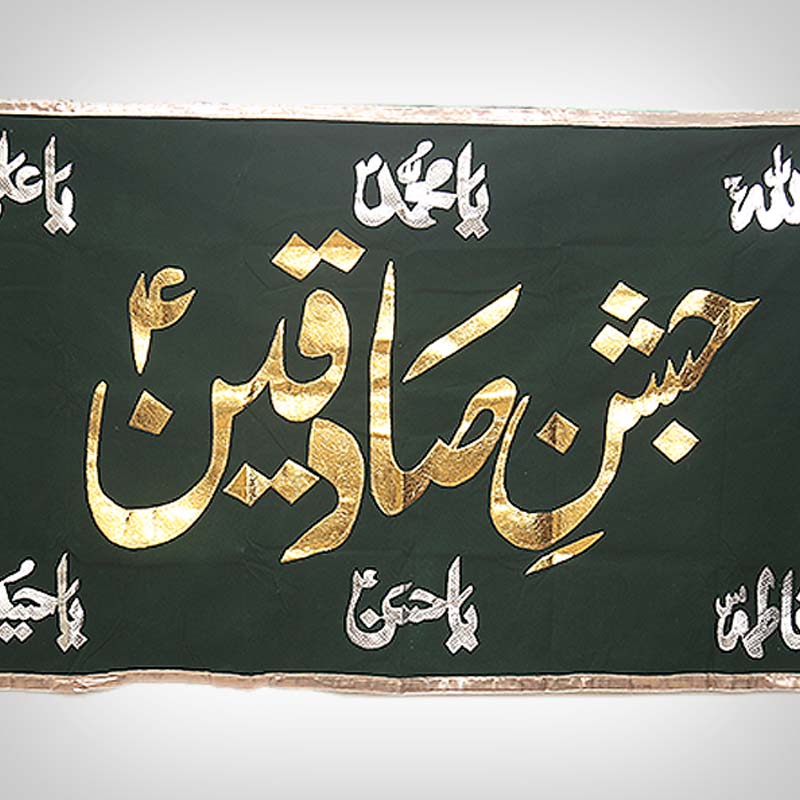 اللہ یا محمدؐ یا علی
جشنِ صادقینؑ
فاطمہؑ یا حسنؑ یا حسین